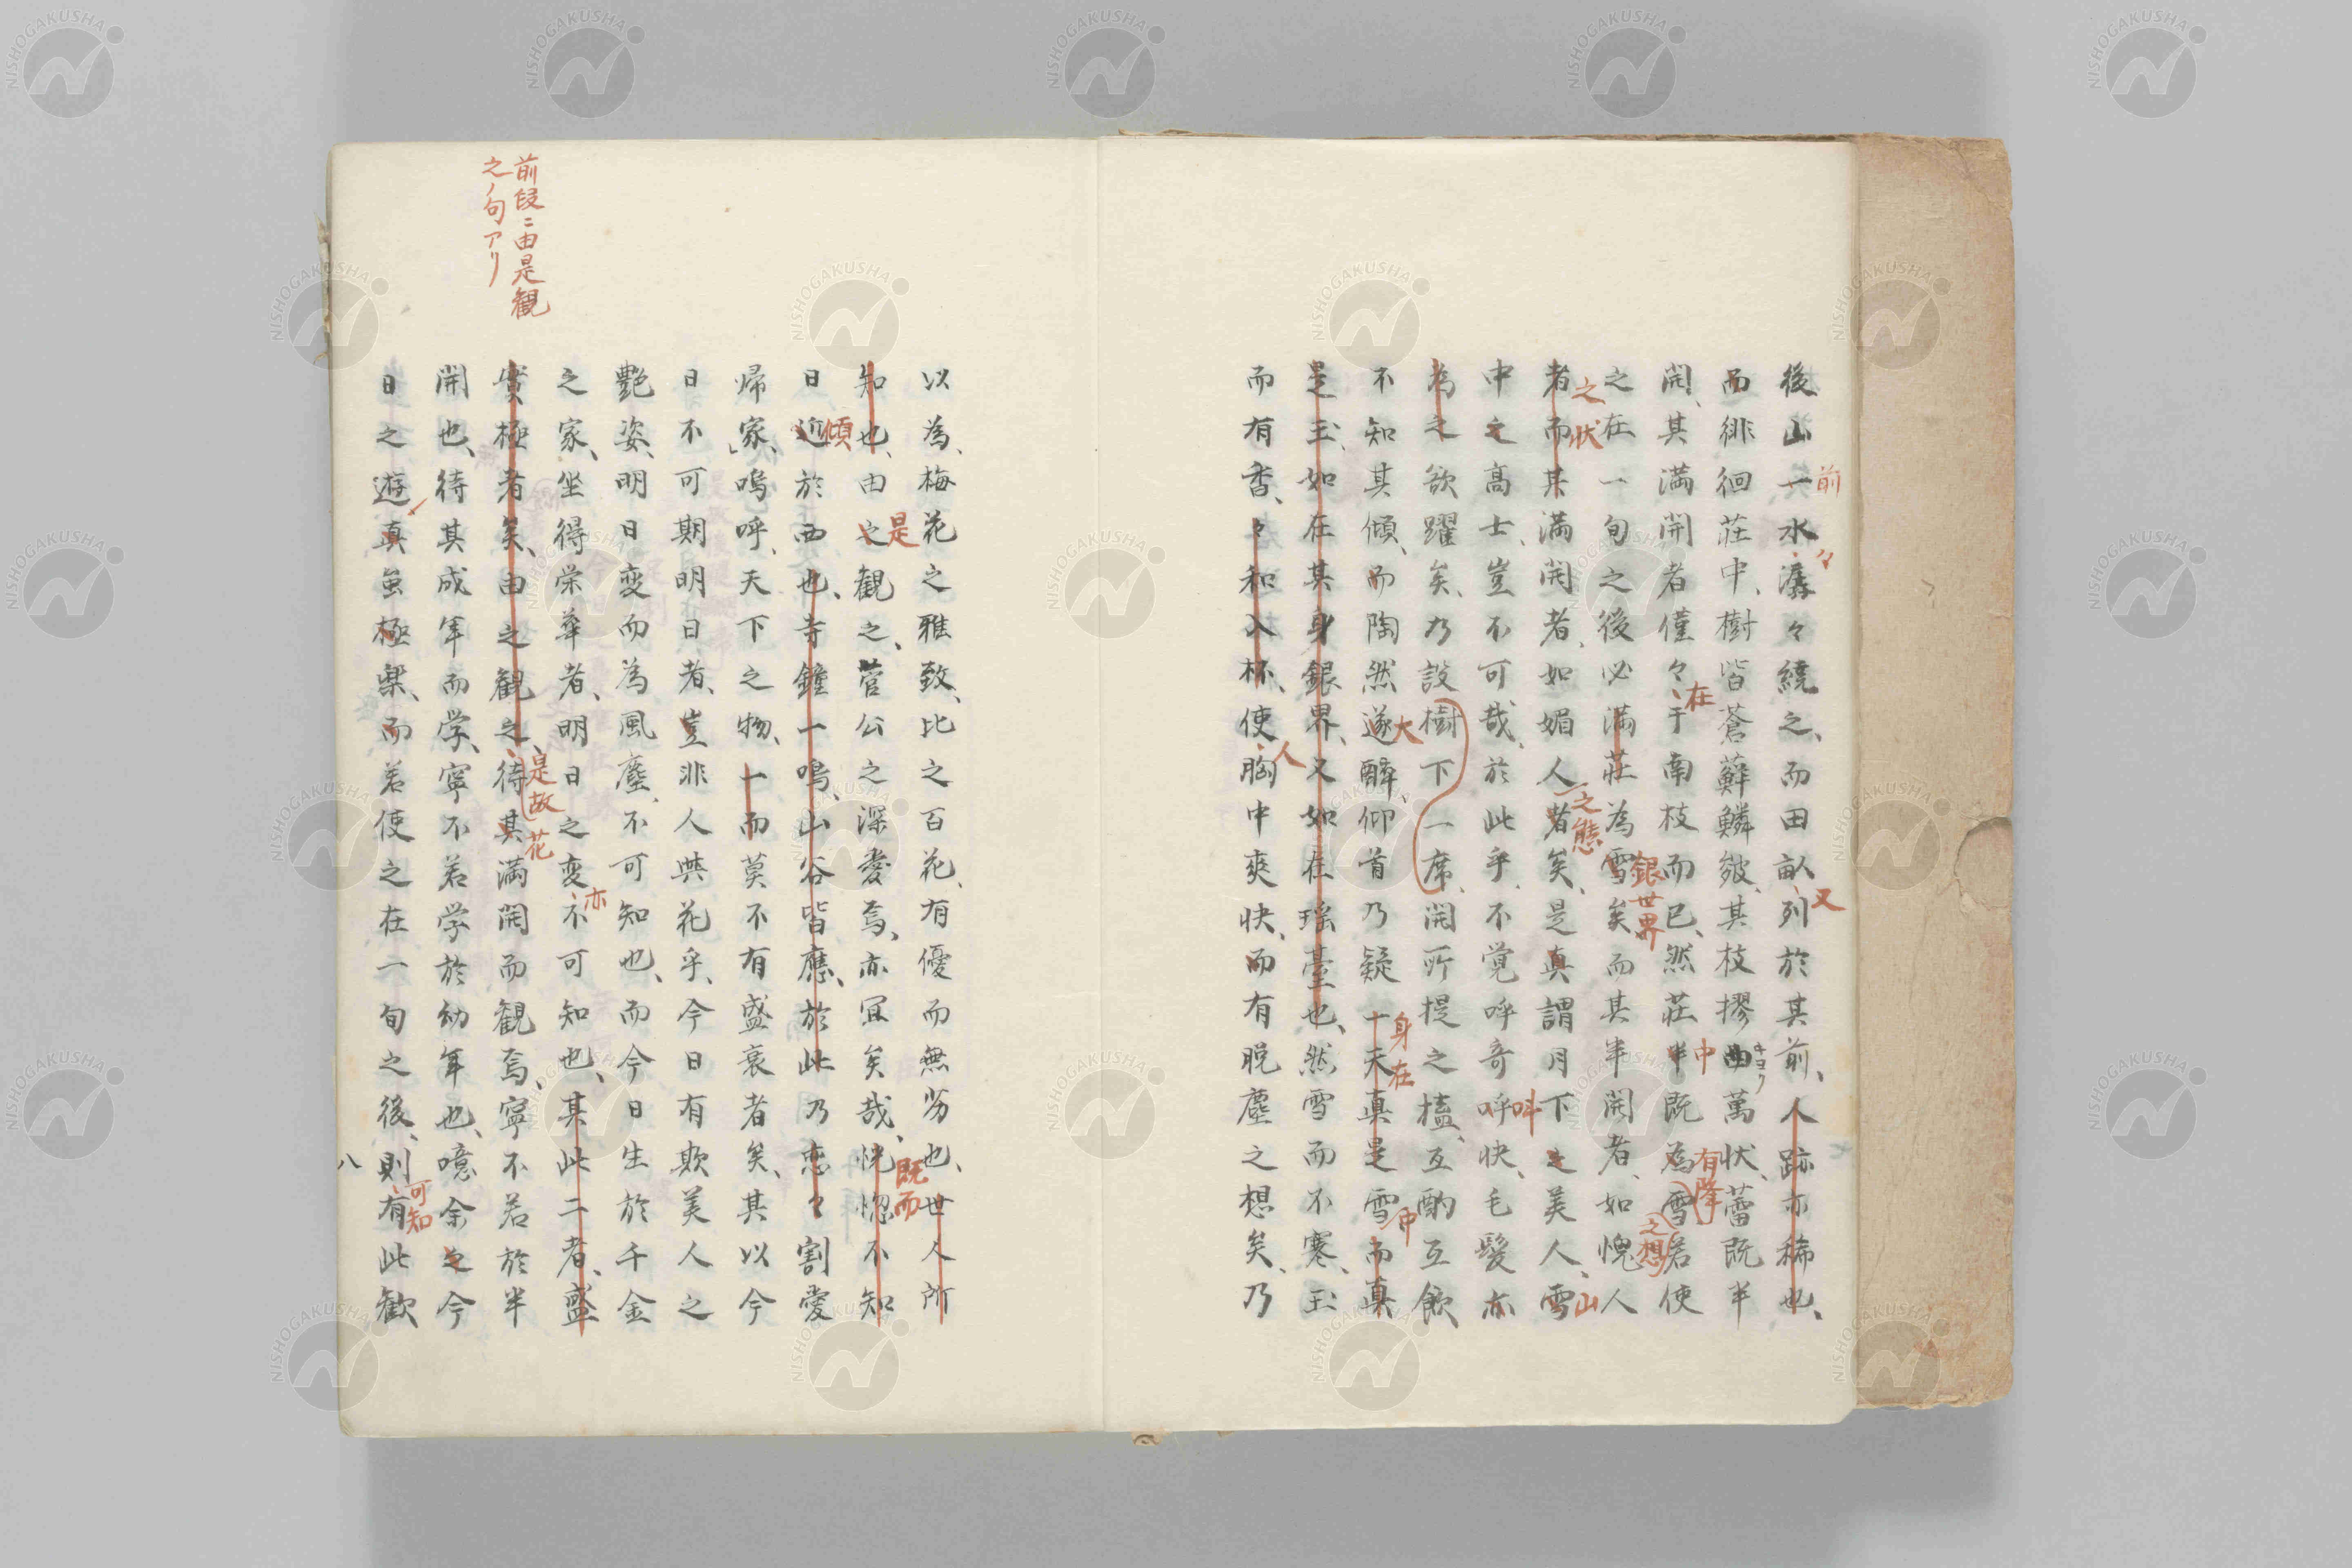 後山一水潺々繞之、而田畝列於其前、人跡亦稀也、
前
々
又
而徘徊荘中、樹皆蒼蘚鱗皴、其枝摎曲萬状、蕾既半
キヨク
開、其満開者僅々于南枝而已、然荘半既為雪、若使
在
中
有隆
之想
之在一旬之後必満荘為雪矣而其半開者、如愧人
銀世界
者而其満開者、如媚人者矣、是真謂月下之美人、雪
之状
之態
山
中之高士、豈不可哉、於此乎、不覚呼奇呼快、毛髪亦
叫
為之欲躍矣、乃設樹下一席、開所提之榼、互酌互飲
不知其傾、而陶然遂酔、仰首乃疑十天真是雪而真
大
身在
中
是玉、如在其身銀界、又如在瑶臺也、然雪而不寒、玉
而有香、々和入杯、使胸中爽快、而有脱塵之想矣、乃
人
以為、梅花之雅致、比之百花、有優而無劣也、世人所
知也、由之観之、菅公之深愛焉、亦冝矣哉、恍惚不知
是
既而
日近於西也、寺鐘一鳴、山谷皆應、於此乃恋々割愛
傾
帰家、嗚呼、天下之物、一而莫不有盛衰者矣、其以今
日不可期明日者、豈非人與花乎、今日有欺美人之
艶姿、明日変而為風塵、不可知也、而今日生於千金
之家、坐得栄華者、明日之変不可知也、其此二者、盛
亦
實極者矣、由之観之、待其満開而観焉、寧不若於半
是故
花
前段ニ由是観
之ノ句アリ
開也、待其成年而学、寧不若学於幼年也、噫余之今
日之遊真虽極楽、而若使之在一旬之後、則有此歓
可知
八